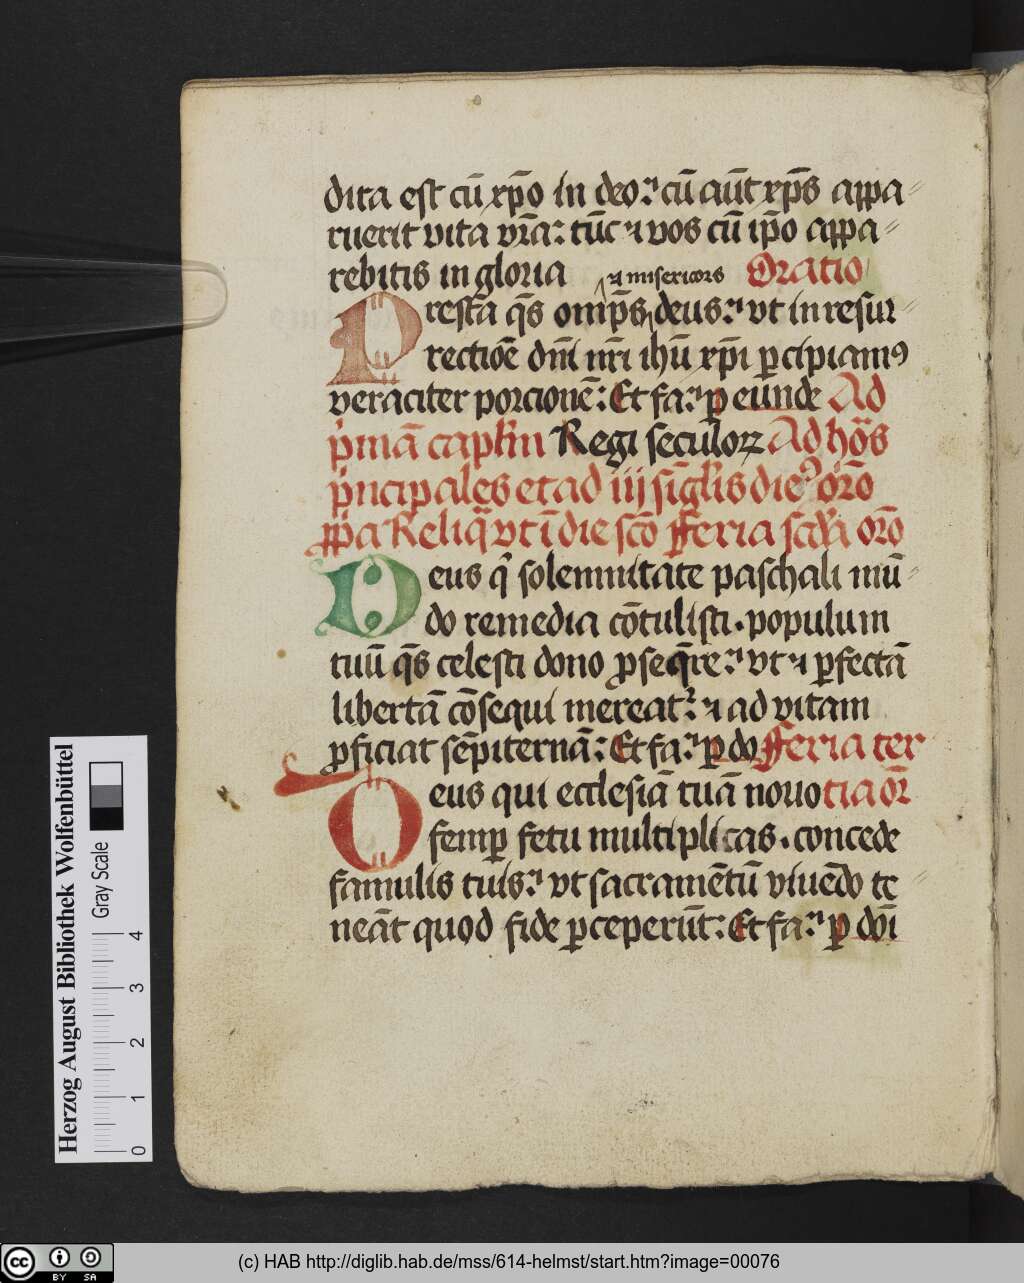 dita est cū xp̄o in deo: cū aūt xp̄s appa⸗
ruerit vita vr̄a: tūc ⁊ vos cū ip̄o appa⸗
rebitis in gloria ⁊ misericors Oratio
Prest̄a q̄s omīp̄s deus: vt in resur⸗
rectiōe dn̄i nr̄i ihū xp̄i ꝑcipiamꝰ
veraciter porcionē: Et fa: ꝑ eūnde Ad
p̄mā capl̄m Regi secul̄oꝝ Ad hōs
p̄ncipales et ad iij sīgl̄is die orō
pp̄a Reliq̄ vt ī die sc̄o Feria scd̄a orō
Deus q̄ solemnitate paschali mū⸗
do remedia cōtulisti. populum
tuū q̄s celesti dono ꝓseq̄re: vt ⁊ ꝑfectā
libertā cōsequi mereat᷑: ⁊ ad vitam
ꝓficiat sēpiternā: Et fa: ꝑ do Feria ter
Deus qui ecclesiā tuā nouo tia or̄
semꝑ fetu multiplicas. concede
famulis tuis: vt sacramētū viuēdo te⸗
neāt quod fide ꝑceperūt: Et fa: ꝑ doi
Herzog August Bibliothek Wolfenbüttel
Gray Scale
0 1 2 3 4
cc BY SA
(c) HAB http://diglib.hab.de/mss/614-helmst/start.htm?image=00076